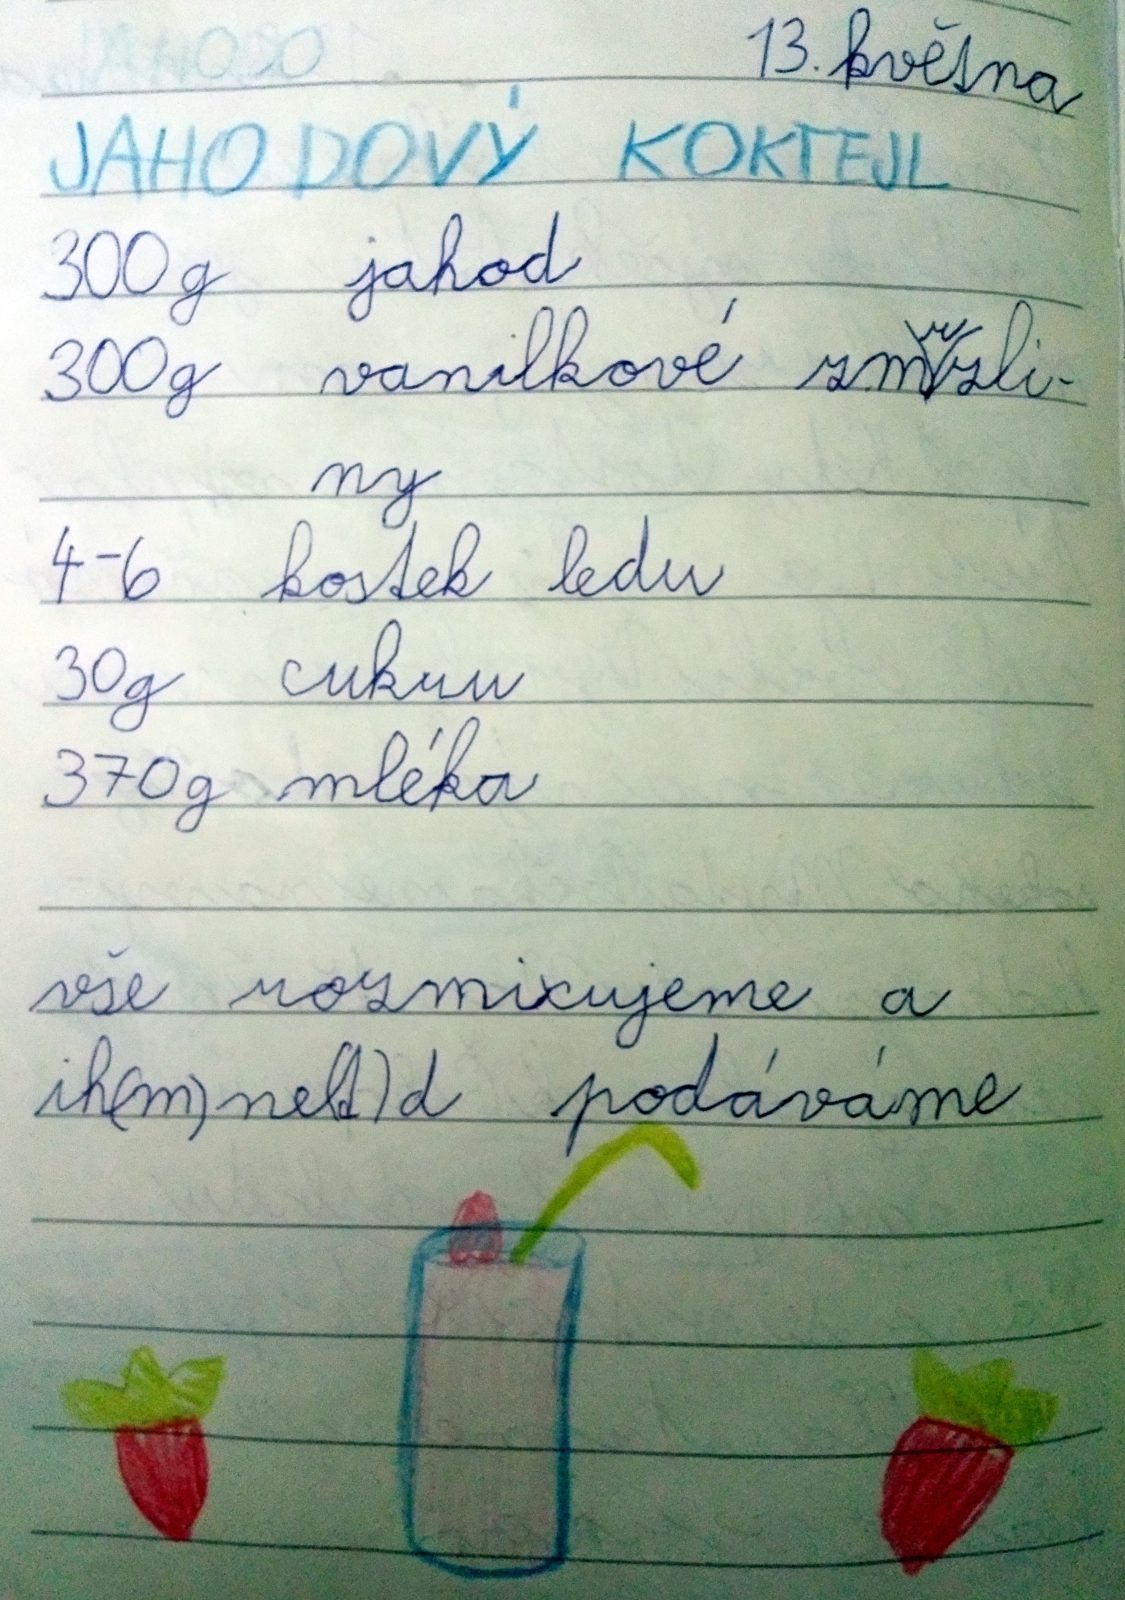 13. května
JAHODOVÝ KOKTEJL
300g jahod
300g vanilkové zmrzli-
ny
4-6 kostek ledu
30g cukuu
370g mléka
vše rozmixujeme a
ih(m)ne(t)d podáváme